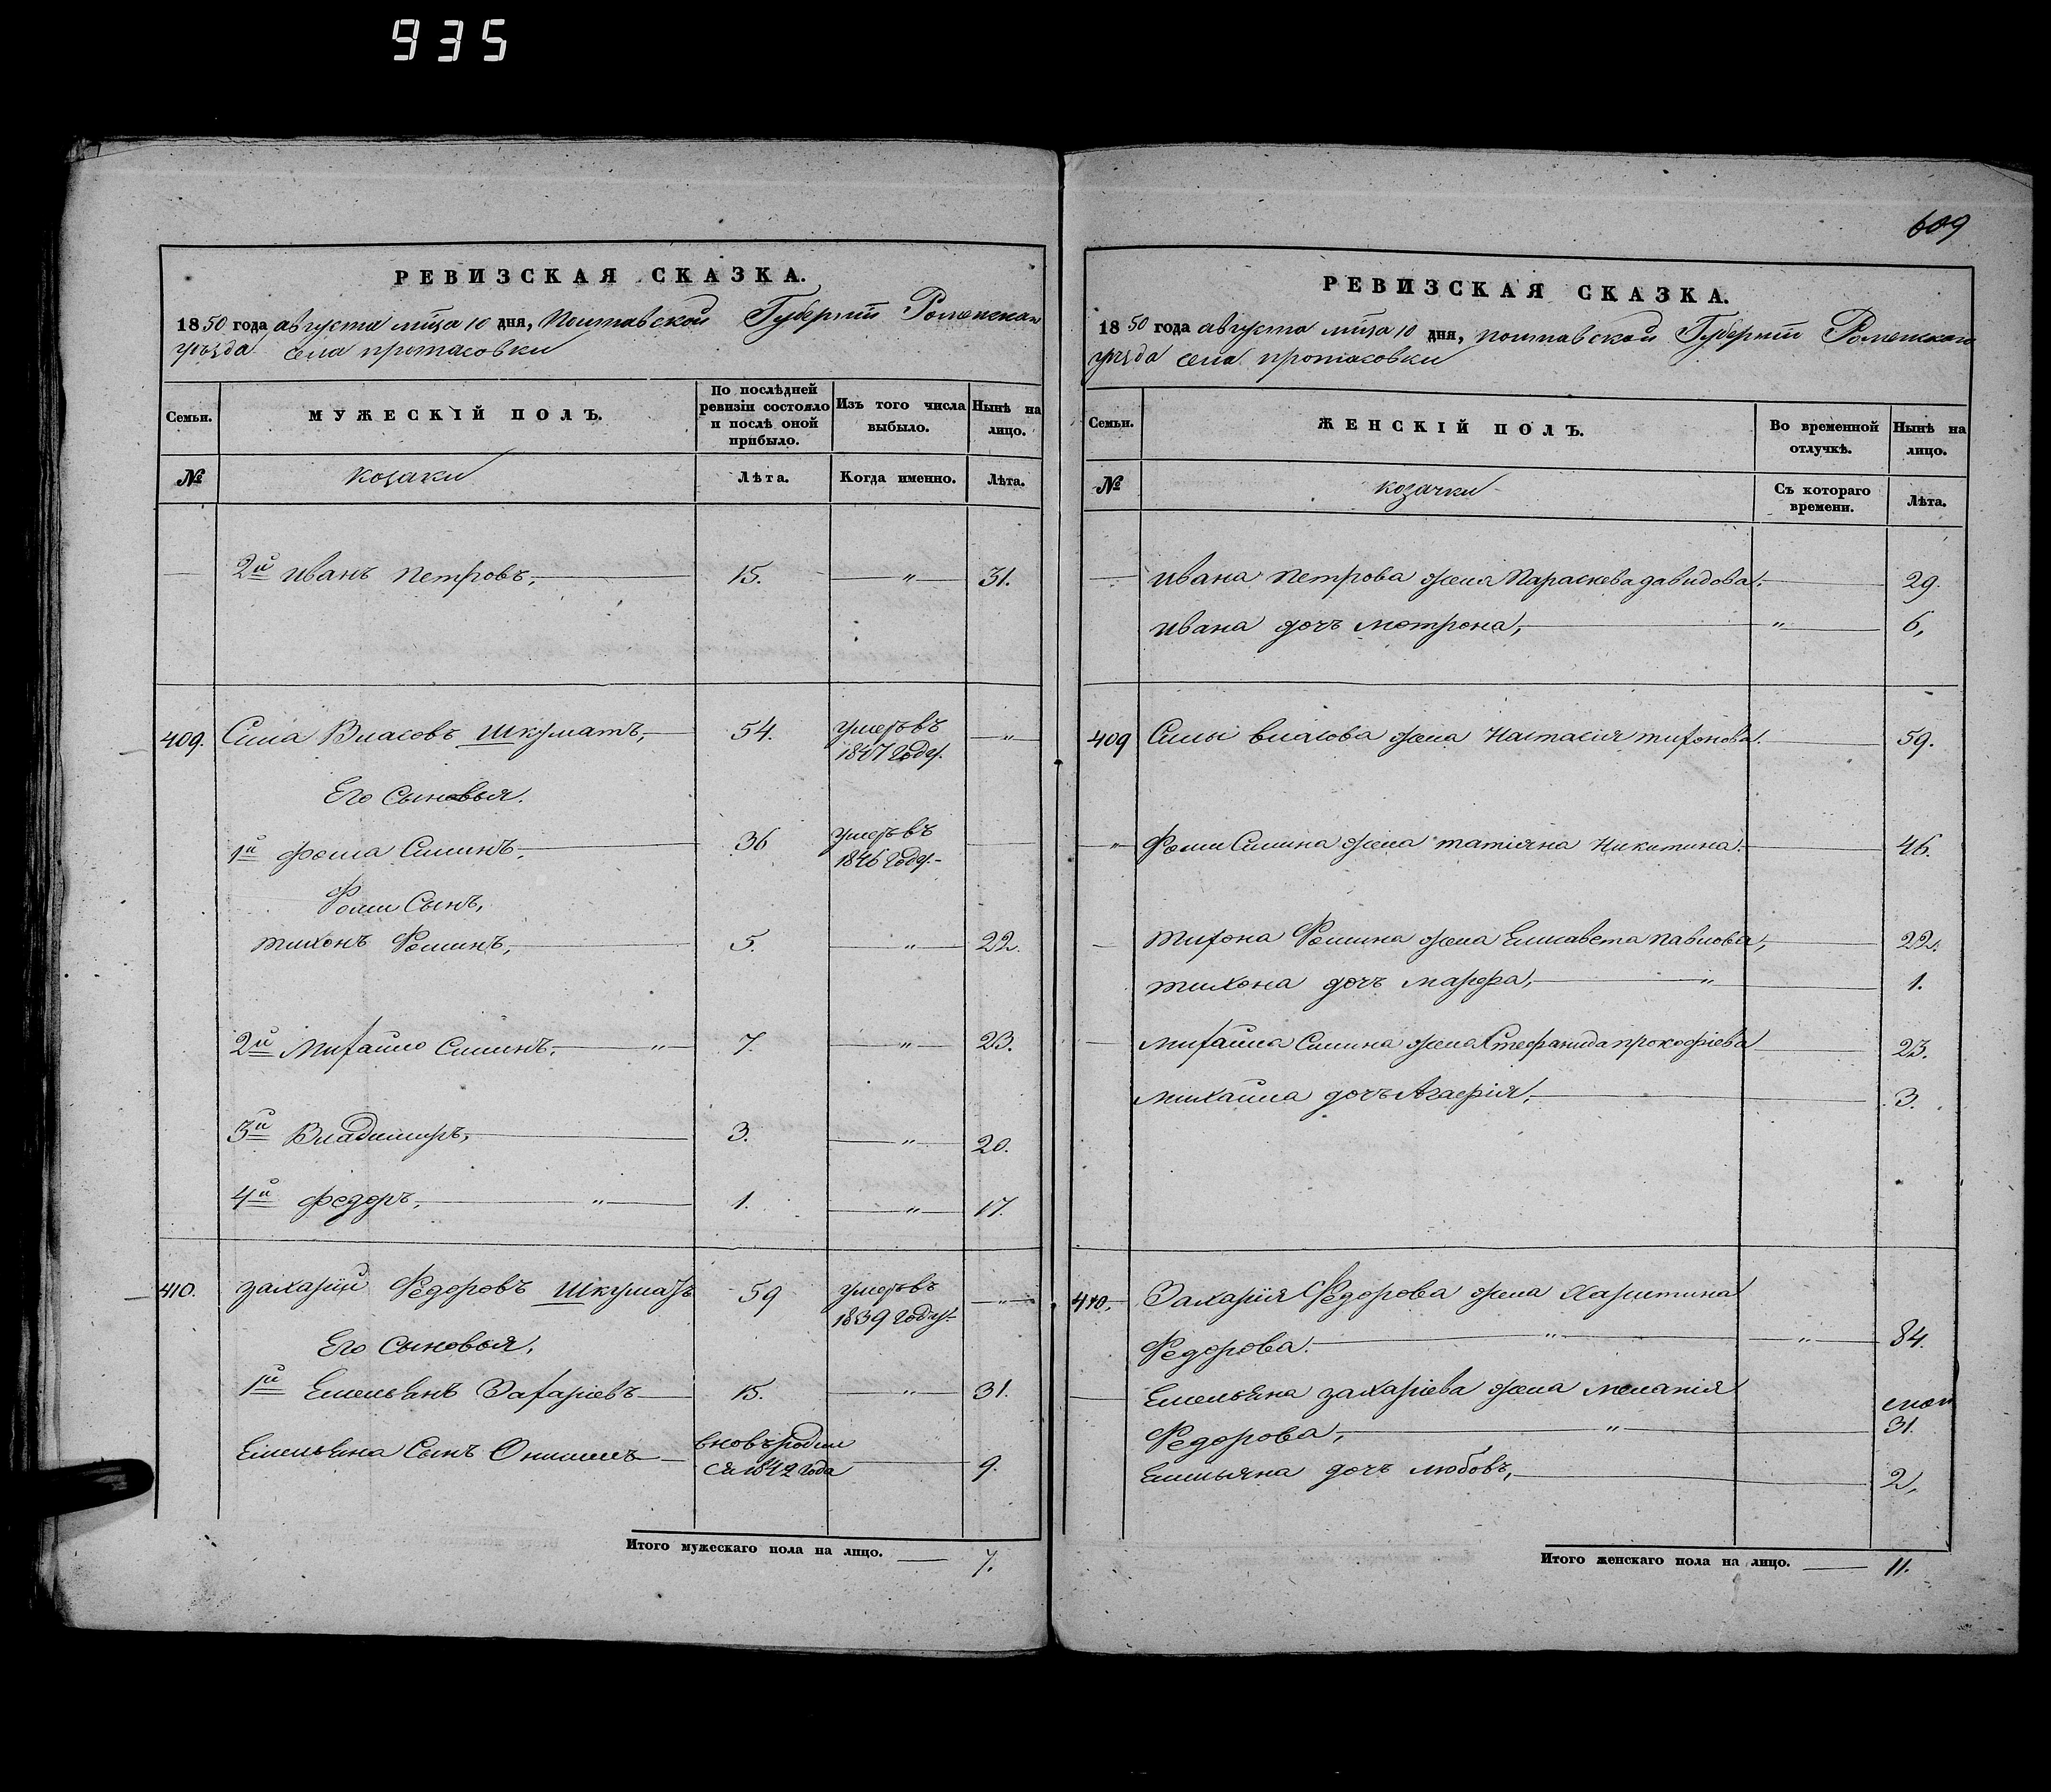 935
РЕВИЗСКАЯ СКАЗКА.
1850 года августа мца 10 дня, Полтавской Губерніи Роменскаго
уѣзда села протасовки
Семьи. МУЖЕСКІЙ ПОЛЪ. По послѣдней ревизіи состояло и послѣ оной прибыло. Изъ того числа выбыло. Нынѣ на лицо.
№ козаки Лѣта. Когда именно. Лѣта.
2й иванъ петровъ, 15. „ 31.
409. Сила Власовъ Шкуматъ, 54. умеръ въ 1847 году. „
Его Сыновья.
1й фома Силинъ, 36 умеръ въ 1846 году.
Фомы Сынъ,
тихонъ Фоминъ, 5. „ 22.
2й Михайло Силинъ, „ 7. „ 23.
3й Владимиръ, 3. „ 20.
4й федоръ, „ 1. „ 17.
410. захарій Федоровъ Шкуматъ 59 умеръ въ 1839 году. „
Его Сыновья,
1й Емельянъ Захаріевъ 15. „ 31.
Емельяна Сынъ Онисимъ вновь родил ся 1842 года 9.
Итого мужескаго пола на лицо. 7.
609
РЕВИЗСКАЯ СКАЗКА.
1850 года августа мца 10 дня, полтавской Губерніи Роменскаго
уѣзда села протасовки
Семьи. ЖЕНСКІЙ ПОЛЪ. Во временной отлучкѣ. Нынѣ на лицо.
№ козачки Съ котораго времени. Лѣта.
ивана петрова жена Параскева давидова. 29.
ивана дочь мотрона, „ 6,
409 Силы власова жена Настасія тихонова. 59.
„ Фомы Силина жена татіяна Никитина. 46.
тихона Фомина жена Елисавета павлова, 22.
тихона дочь марфа, „ 1.
михайла Силина жена Стефанида прокофіева 23.
михайла дочь Агафія, 3.
410. Захарія Федорова жена Харитина
Федорова. „ „ 84.
Емельяна захаріева жена меланія
Федорова, „ 31.
Емельяна дочь любовь, 2,
Итого женскаго пола на лицо. 11.